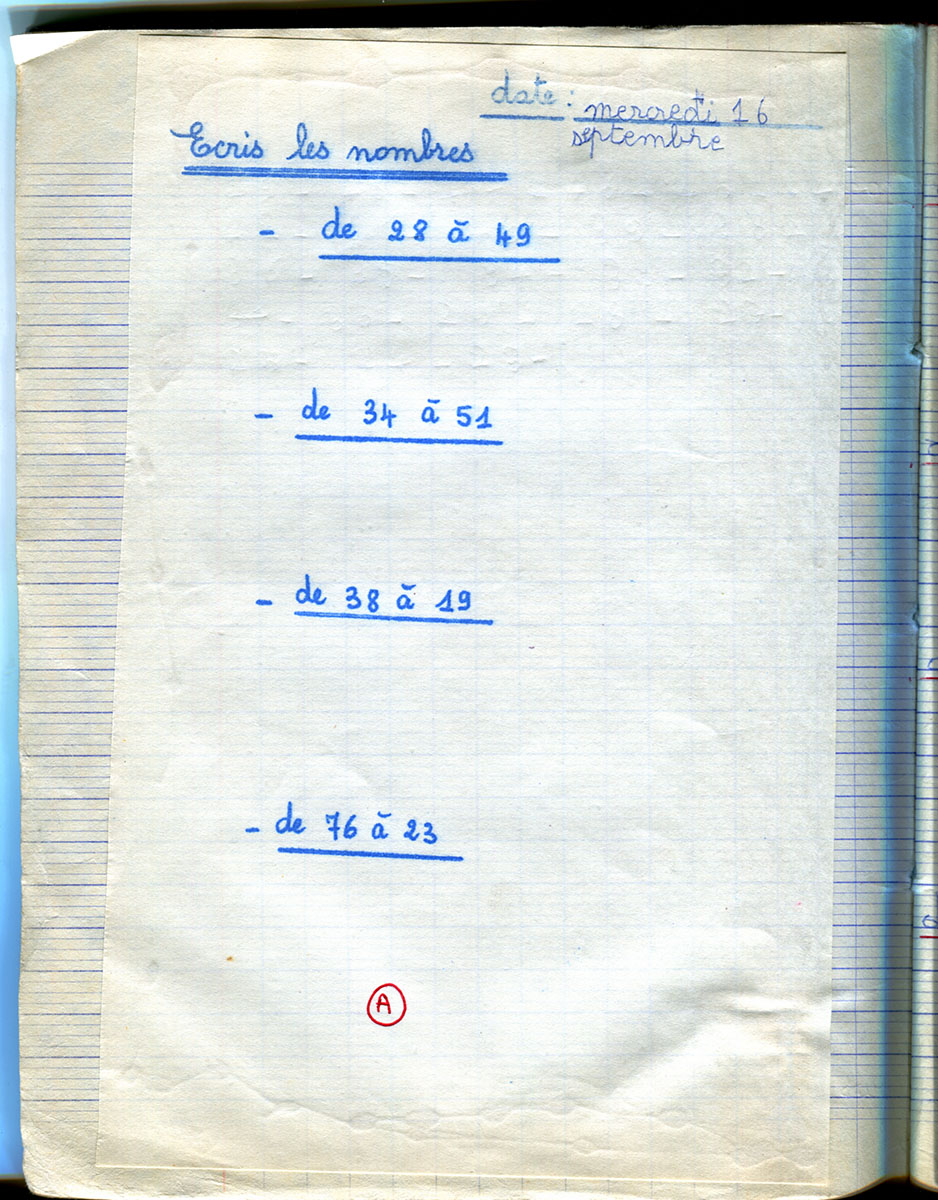 date : mercredi 16
septembre
Ecris les nombres
- de 28 à 49
- de 34 à 51
- de 38 à 19
- de 76 à 23
A